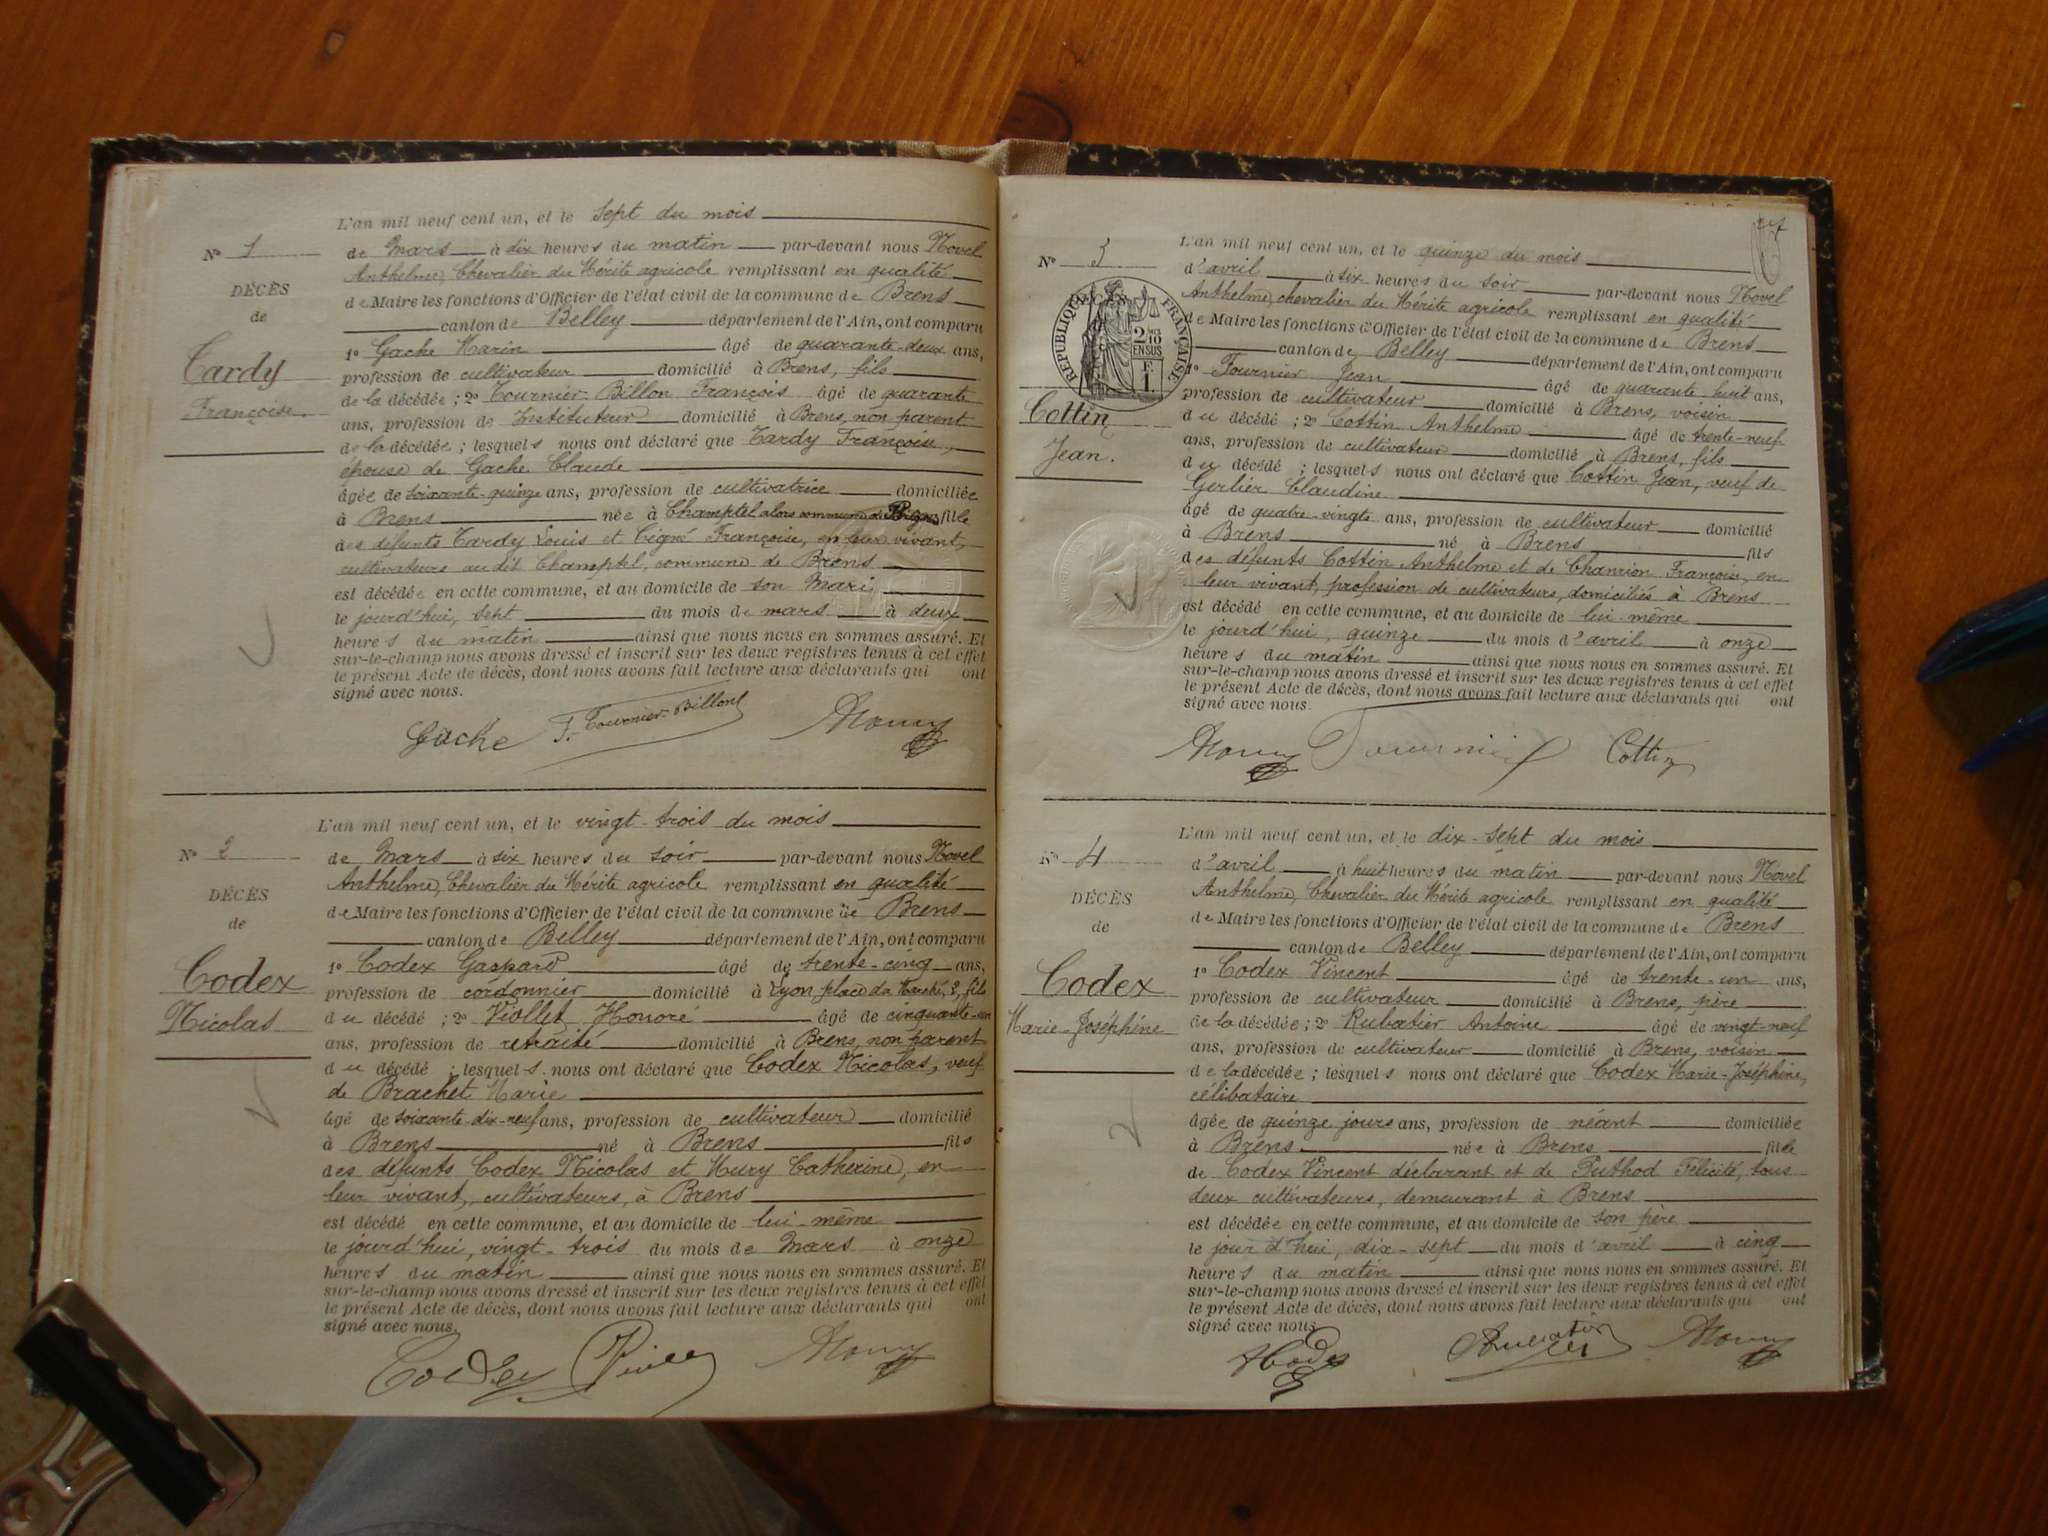 L'an mil neuf cent un, et le sept du mois
N° 1
de Mars à dix heures du matin par-devant nous Novel
Anthelme, Chevalier du Mérite agricole remplissant en qualité
DÉCÈS
de Maire les fonctions d'Officier de l'état civil de la commune de Brens
de
canton de Belley département de l'Ain, ont comparu
1° Gache Marin âgé de quarante-deux ans,
Tardy
profession de cultivateur domicilié à Brens, fils
Françoise.
de la décédée ; 2° Tournier-Billon François âgé de quarante
ans, profession de Instituteur domicilié à Brens, non parent
de la décédée ; lesquels nous ont déclaré que Tardy Françoise,
épouse de Gache Claude
âgée de soixante-quinze ans, profession de cultivatrice domiciliée
à Brens née à Champtel alors commune de fille
des défunts Tardy Louis et Françoise, en leur vivant,
cultivateurs au dit Champtel, commune de Brens
est décédée en cette commune, et au domicile de son Mari
le jourd'hui, sept du mois de mars à deux
heures du matin ainsi que nous nous en sommes assuré. Et
sur-le-champ nous avons dressé et inscrit sur les deux registres tenus à cet effet
le présent Acte de décès, dont nous avons fait lecture aux déclarants qui ont
signé avec nous.
Gache F. Tournier-Billon
L'an mil neuf cent un, et le vingt-trois du mois
N° 2
de Mars à six heures du soir par-devant nous Novel
Anthelme, Chevalier du Mérite agricole remplissant en qualité
DÉCÈS
de Maire les fonctions d'Officier de l'état civil de la commune de Brens
de
canton de Belley département de l'Ain, ont comparu
Codex
1° Codex Gaspard âgé de trente-cinq ans,
profession de cordonnier domicilié à Lyon place du Marché, 3, fils
Nicolas
du décédé ; 2° Viollet Honoré âgé de cinquante-un
ans, profession de retraité domicilié à Brens, non parent
du décédé ; lesquels nous ont déclaré que Codex Nicolas, veuf
de Brachet Marie
âgé de soixante-dix-neuf ans, profession de cultivateur domicilié
à Brens né à Brens fils
des défunts Codex Nicolas et Mury Catherine, en
leur vivant, cultivateurs, à Brens
est décédé en cette commune, et au domicile de lui-même
le jourd'hui, vingt-trois du mois de Mars à onze
heures du matin ainsi que nous nous en sommes assuré. Et
sur-le-champ nous avons dressé et inscrit sur les deux registres tenus à cet effet
le présent Acte de décès, dont nous avons fait lecture aux déclarants qui ont
signé avec nous.
Codex
27
L'an mil neuf cent un, et le quinze du mois
N° 3
d'avril à six heures du soir par-devant nous Novel
Anthelme, chevalier du Mérite agricole remplissant en qualité
DÉCÈS
RÉPUBLIQUE FRANÇAISE
2/10 EN SUS
F. 1.
de Maire les fonctions d'Officier de l'état civil de la commune de Brens
canton de Belley département de l'Ain, ont comparu
1° Tournier Jean âgé de quarante-huit ans,
profession de cultivateur domicilié à Brens, voisin
Cottin
du décédé ; 2° Cottin Anthelme âgé de trente-neuf
Jean.
ans, profession de cultivateur domicilié à Brens, fils
du décédé ; lesquels nous ont déclaré que Cottin Jean, veuf de
Gerlier Claudine
âgé de quatre-vingts ans, profession de cultivateur domicilié
à Brens né à Brens fils
des défunts Cottin Anthelme et de Chanrion Françoise, en
leur vivant, profession de cultivateurs, domiciliés à Brens
est décédé en cette commune, et au domicile de lui-même
le jourd'hui, quinze du mois d'avril à onze
heures du matin ainsi que nous nous en sommes assuré. Et
sur-le-champ nous avons dressé et inscrit sur les deux registres tenus à cet effet
le présent Acte de décès, dont nous avons fait lecture aux déclarants qui ont
signé avec nous.
Tournier Cottin
L'an mil neuf cent un, et le dix-sept du mois
N° 4
d'avril à huit heures du matin par-devant nous Novel
Anthelme, Chevalier du Mérite agricole remplissant en qualité
DÉCÈS
de Maire les fonctions d'Officier de l'état civil de la commune de Brens
de
canton de Belley département de l'Ain, ont comparu
Codex
1° Codex Vincent âgé de trente-un ans,
profession de cultivateur domicilié à Brens, père
Marie-Joséphine
de la décédée ; 2° Rubatier Antoine âgé de vingt-neuf
ans, profession de cultivateur domicilié à Brens, voisin
de la décédée ; lesquels nous ont déclaré que Codex Marie-Joséphine,
célibataire
âgée de quinze jours ans, profession de néant domiciliée
à Brens née à Brens fille
de Codex Vincent déclarant et de Puthod Félicité, tous
deux cultivateurs, demeurant à Brens
est décédée en cette commune, et au domicile de son père
le jourd'hui, dix-sept du mois d'avril à cinq
heures du matin ainsi que nous nous en sommes assuré. Et
sur-le-champ nous avons dressé et inscrit sur les deux registres tenus à cet effet
le présent Acte de décès, dont nous avons fait lecture aux déclarants qui ont
signé avec nous.
Rubatier